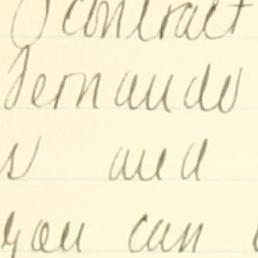 contract
Fernando
s and
you can